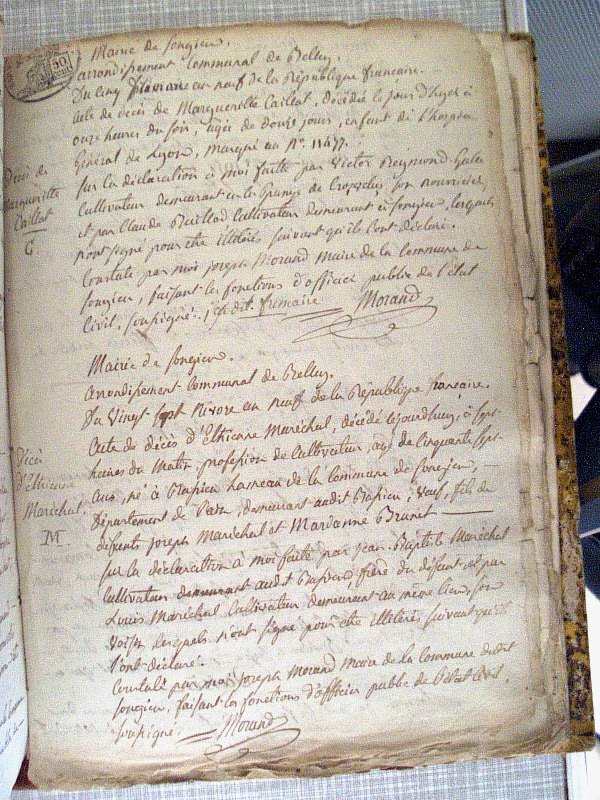 Mairie de Songieu.
arrondissement Communal de Belley.
Du Cinq frimaire an neuf de la République française.
acte de décès de Marguerite Caillat, décédée le jour d'hyer à
onze heures du soir, agée de douze jours, enfant de l'hospice
Général de Lyon, marqué au No. 11477.
Décè de
Marguerite
Caillat
C
sur la déclaration à moi faitte par Victor Reymond
Cultivateur demeurant en la Grange de son nourricier,
et par Claude Cultivateur demeurant à Songieu, lesquels
n'ont signé pour être illitérés suivant qu'ils l'ont déclaré.
Constaté par moi joseph Morand Maire de la Commune de
Songieu, faisant les fonctions d'officier public de l'état
Civil, soussigné. dit frimaire Morand
Mairie de Songieu.
arrondissement Communal de Belley.
Du Vingt sept Nivose an neuf de la République française.
Décè
d'Ethienne
Maréchal.
M
Acte de décès d'Ethienne Maréchal, décédé lejourdhuy, à sept
heures du Matin, profession de Cultivateur, agé de cinquante sept
ans, né à hameau de la Commune de Songieu,
Département de l'ain, demeurant audit veuf, fils de
défunts joseph Maréchal et Marianne Brunet
sur la déclaration à moi faite par jean Baptiste Maréchal
Cultivateur demeurant audit frère du défunt et par
Louis Maréchal Cultivateur demeurant au même lieu, son
Voisin lesquels n'ont signé pour être illitéré, suivant qu'ils
l'ont déclaré.
Constaté par moi joseph Morand Maire de la Commune dudit
Songieu, faisant les fonctions d'officier public de l'état Civil
soussigné. Morand